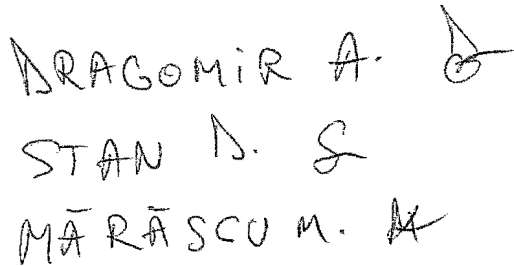 DRAGOMIR A.
STAN D.
MĀRĀSCU M.